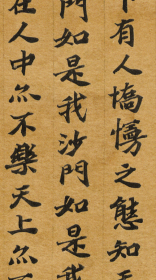 下有人憍慢之態知
門如是我沙門如是我
在人中亦不樂天上亦